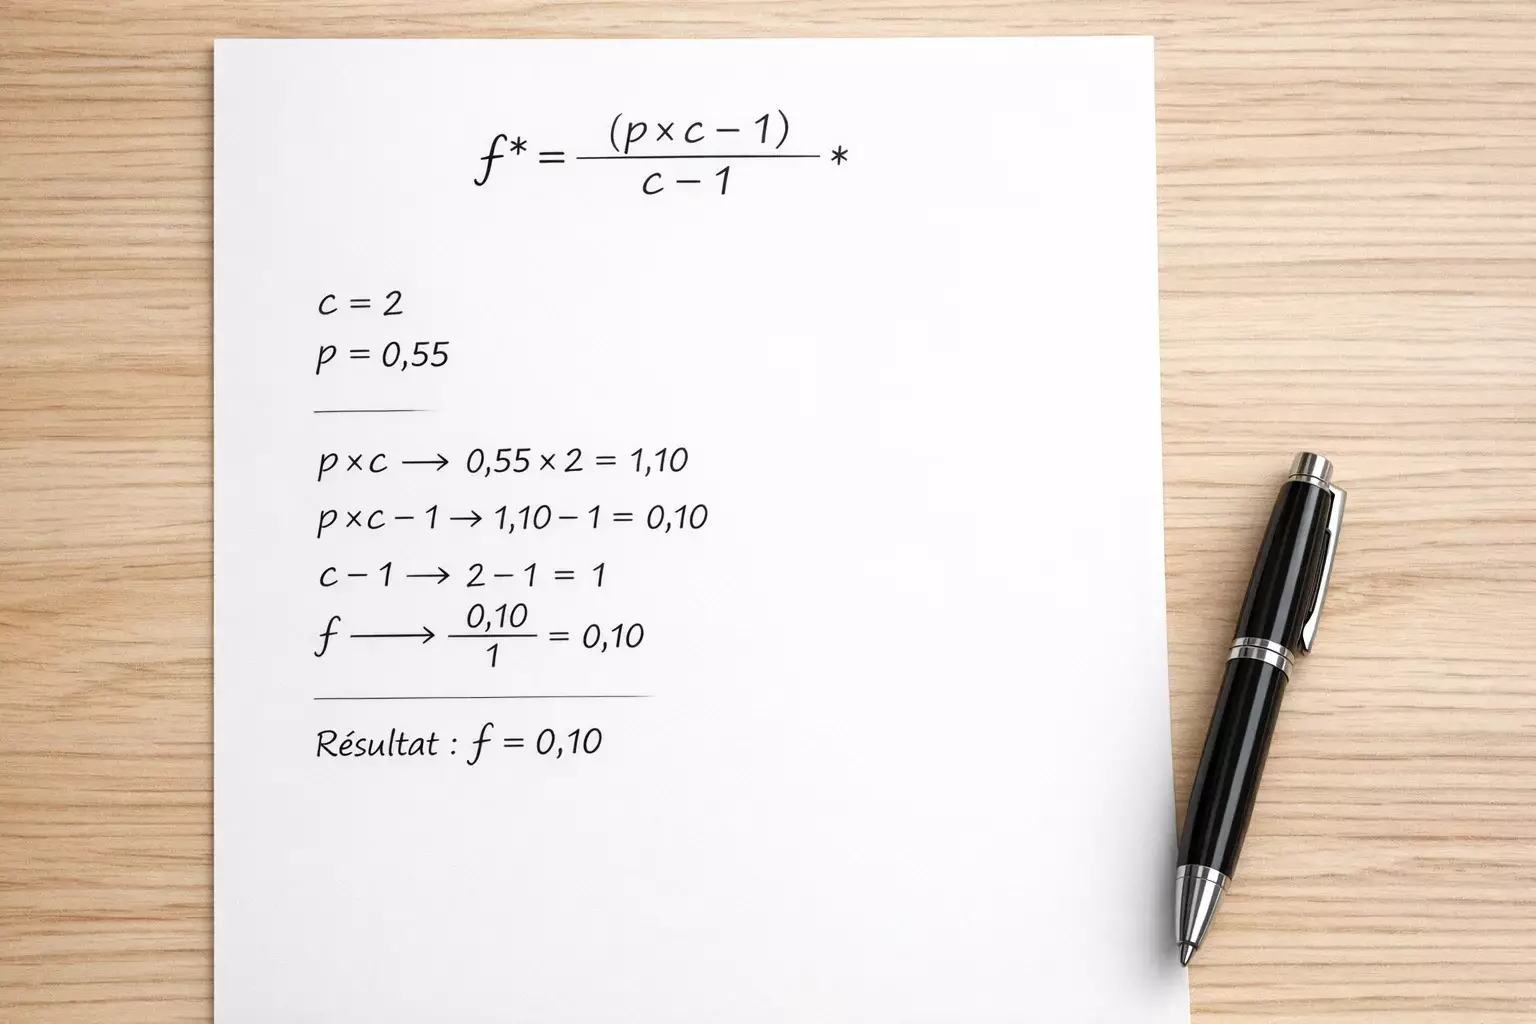 f* = (p × c − 1) / c − 1 *
c = 2
p = 0,55
p × c → 0,55 × 2 = 1,10
p × c − 1 → 1,10 − 1 = 0,10
c − 1 → 2 − 1 = 1
f → 0,10 / 1 = 0,10
Résultat : f = 0,10